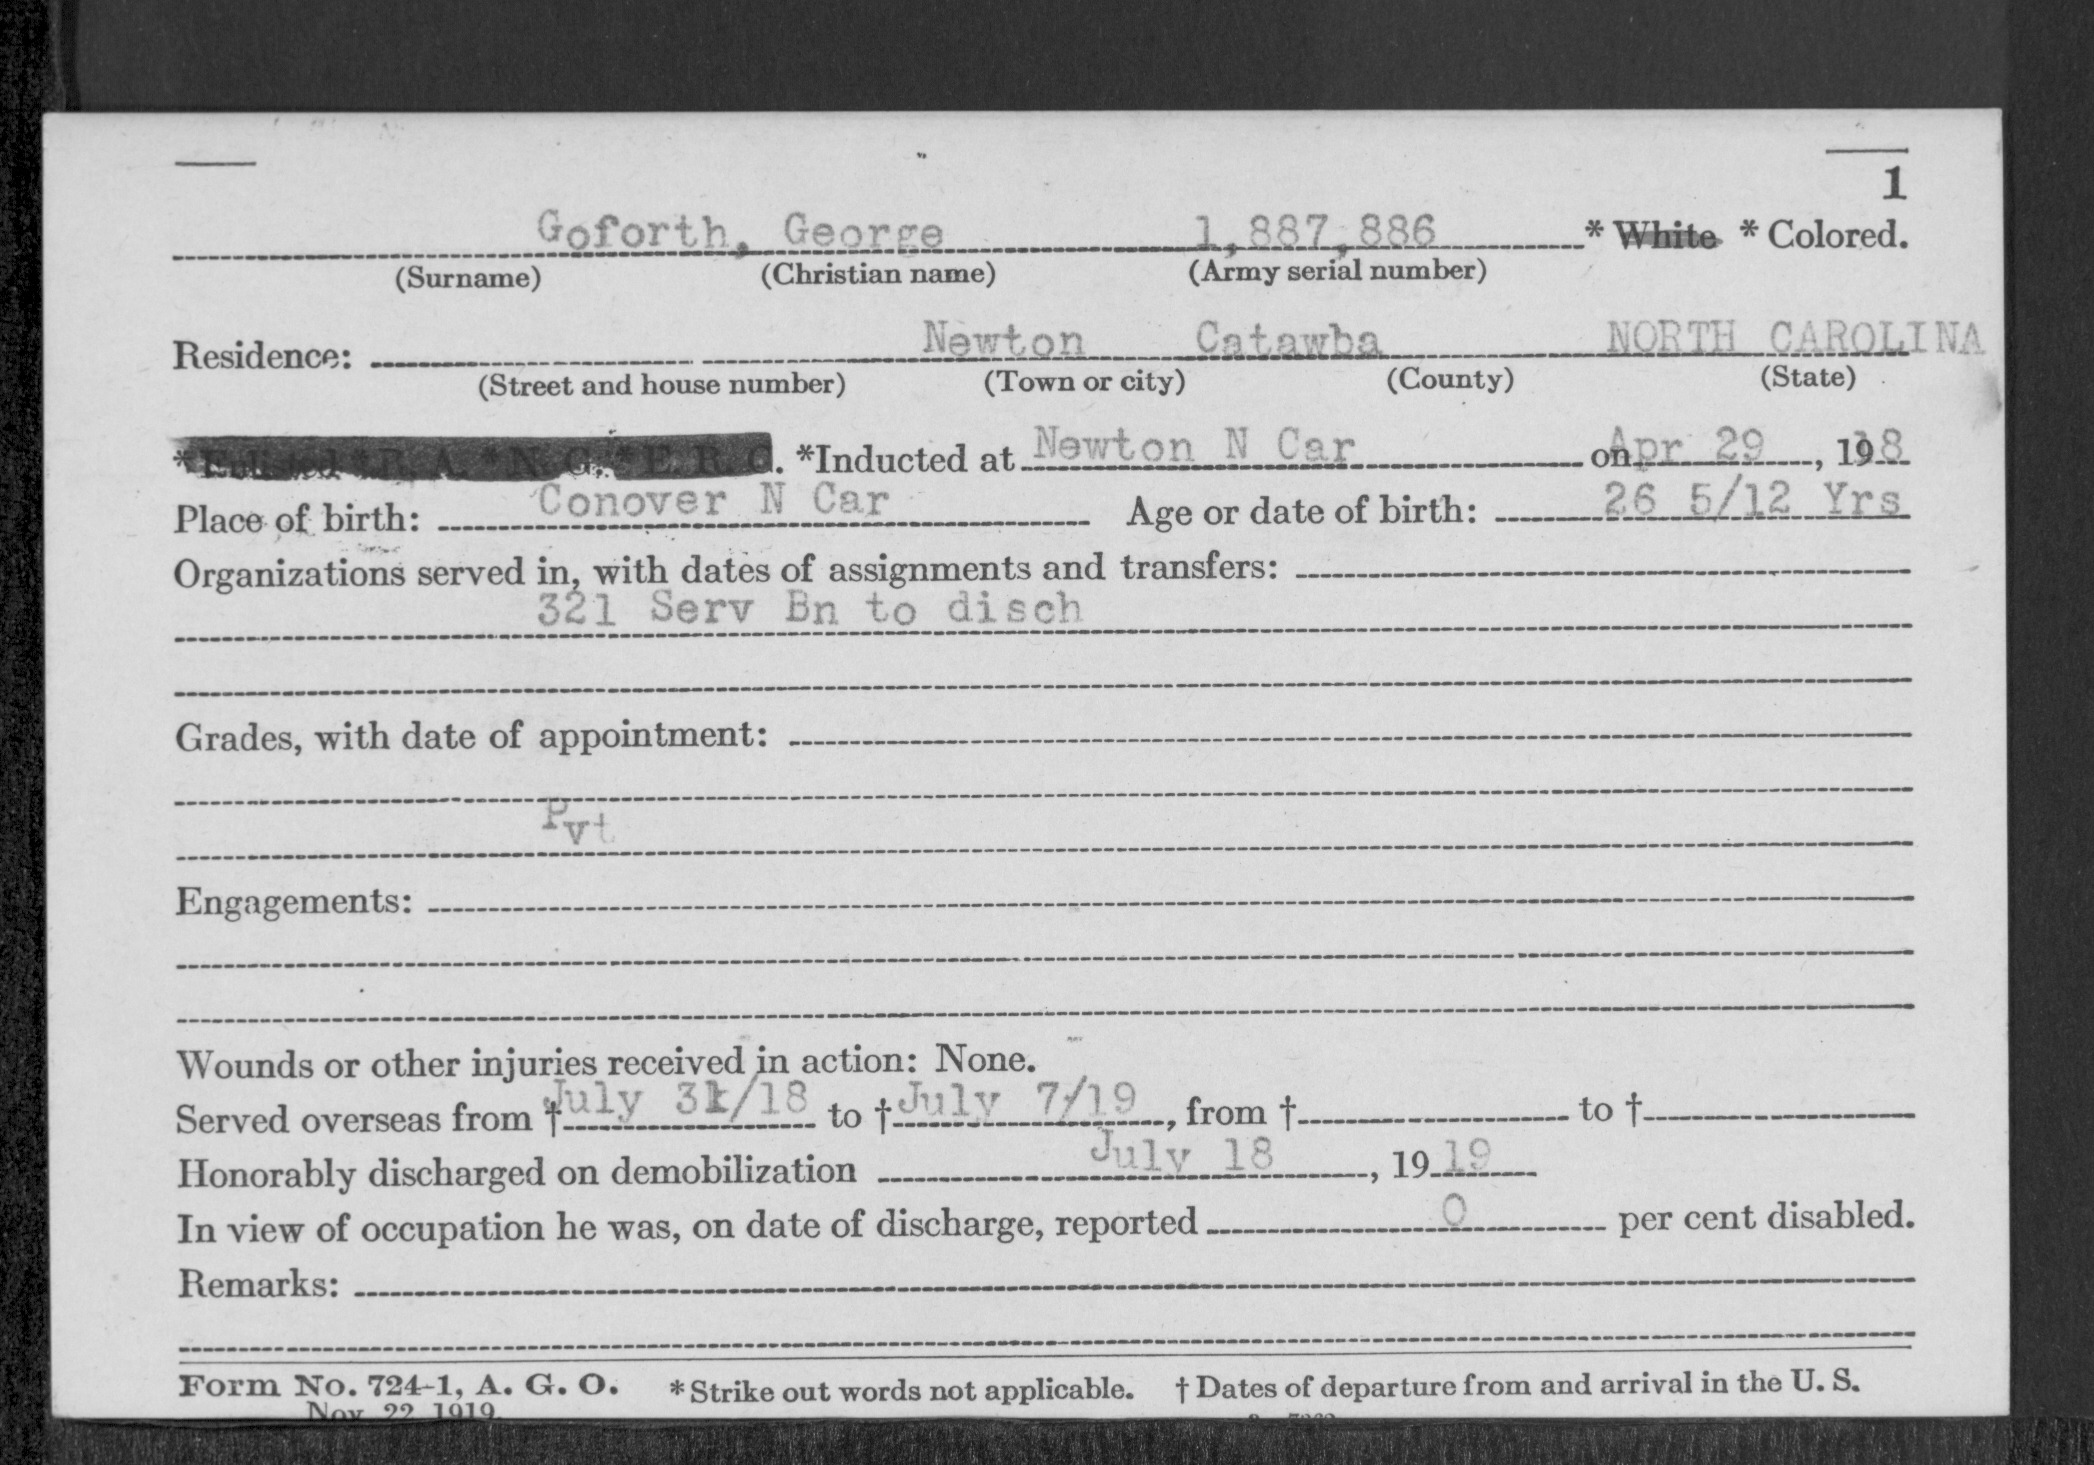 1
Goforth, George 1,887,886 * White * Colored.
(Surname) (Christian name) (Army serial number)
Residence: Newton Catawba NORTH CAROLINA
(Street and house number) (Town or city) (County) (State)
*Enlisted *R. A. *N. G. *E. R. C. *Inducted at Newton N Car on Apr 29, 1918
Place of birth: Conover N Car Age or date of birth: 26 5/12 Yrs
Organizations served in, with dates of assignments and transfers:
321 Serv Bn to disch
Grades, with date of appointment:
Pvt
Engagements:
Wounds or other injuries received in action: None.
Served overseas from † July 31/18 to † July 7/19, from † to †
Honorably discharged on demobilization July 18, 1919
In view of occupation he was, on date of discharge, reported 0 per cent disabled.
Remarks:
Form No. 724-1, A. G. O. * Strike out words not applicable. † Dates of departure from and arrival in the U. S.
Nov. 22 1919.